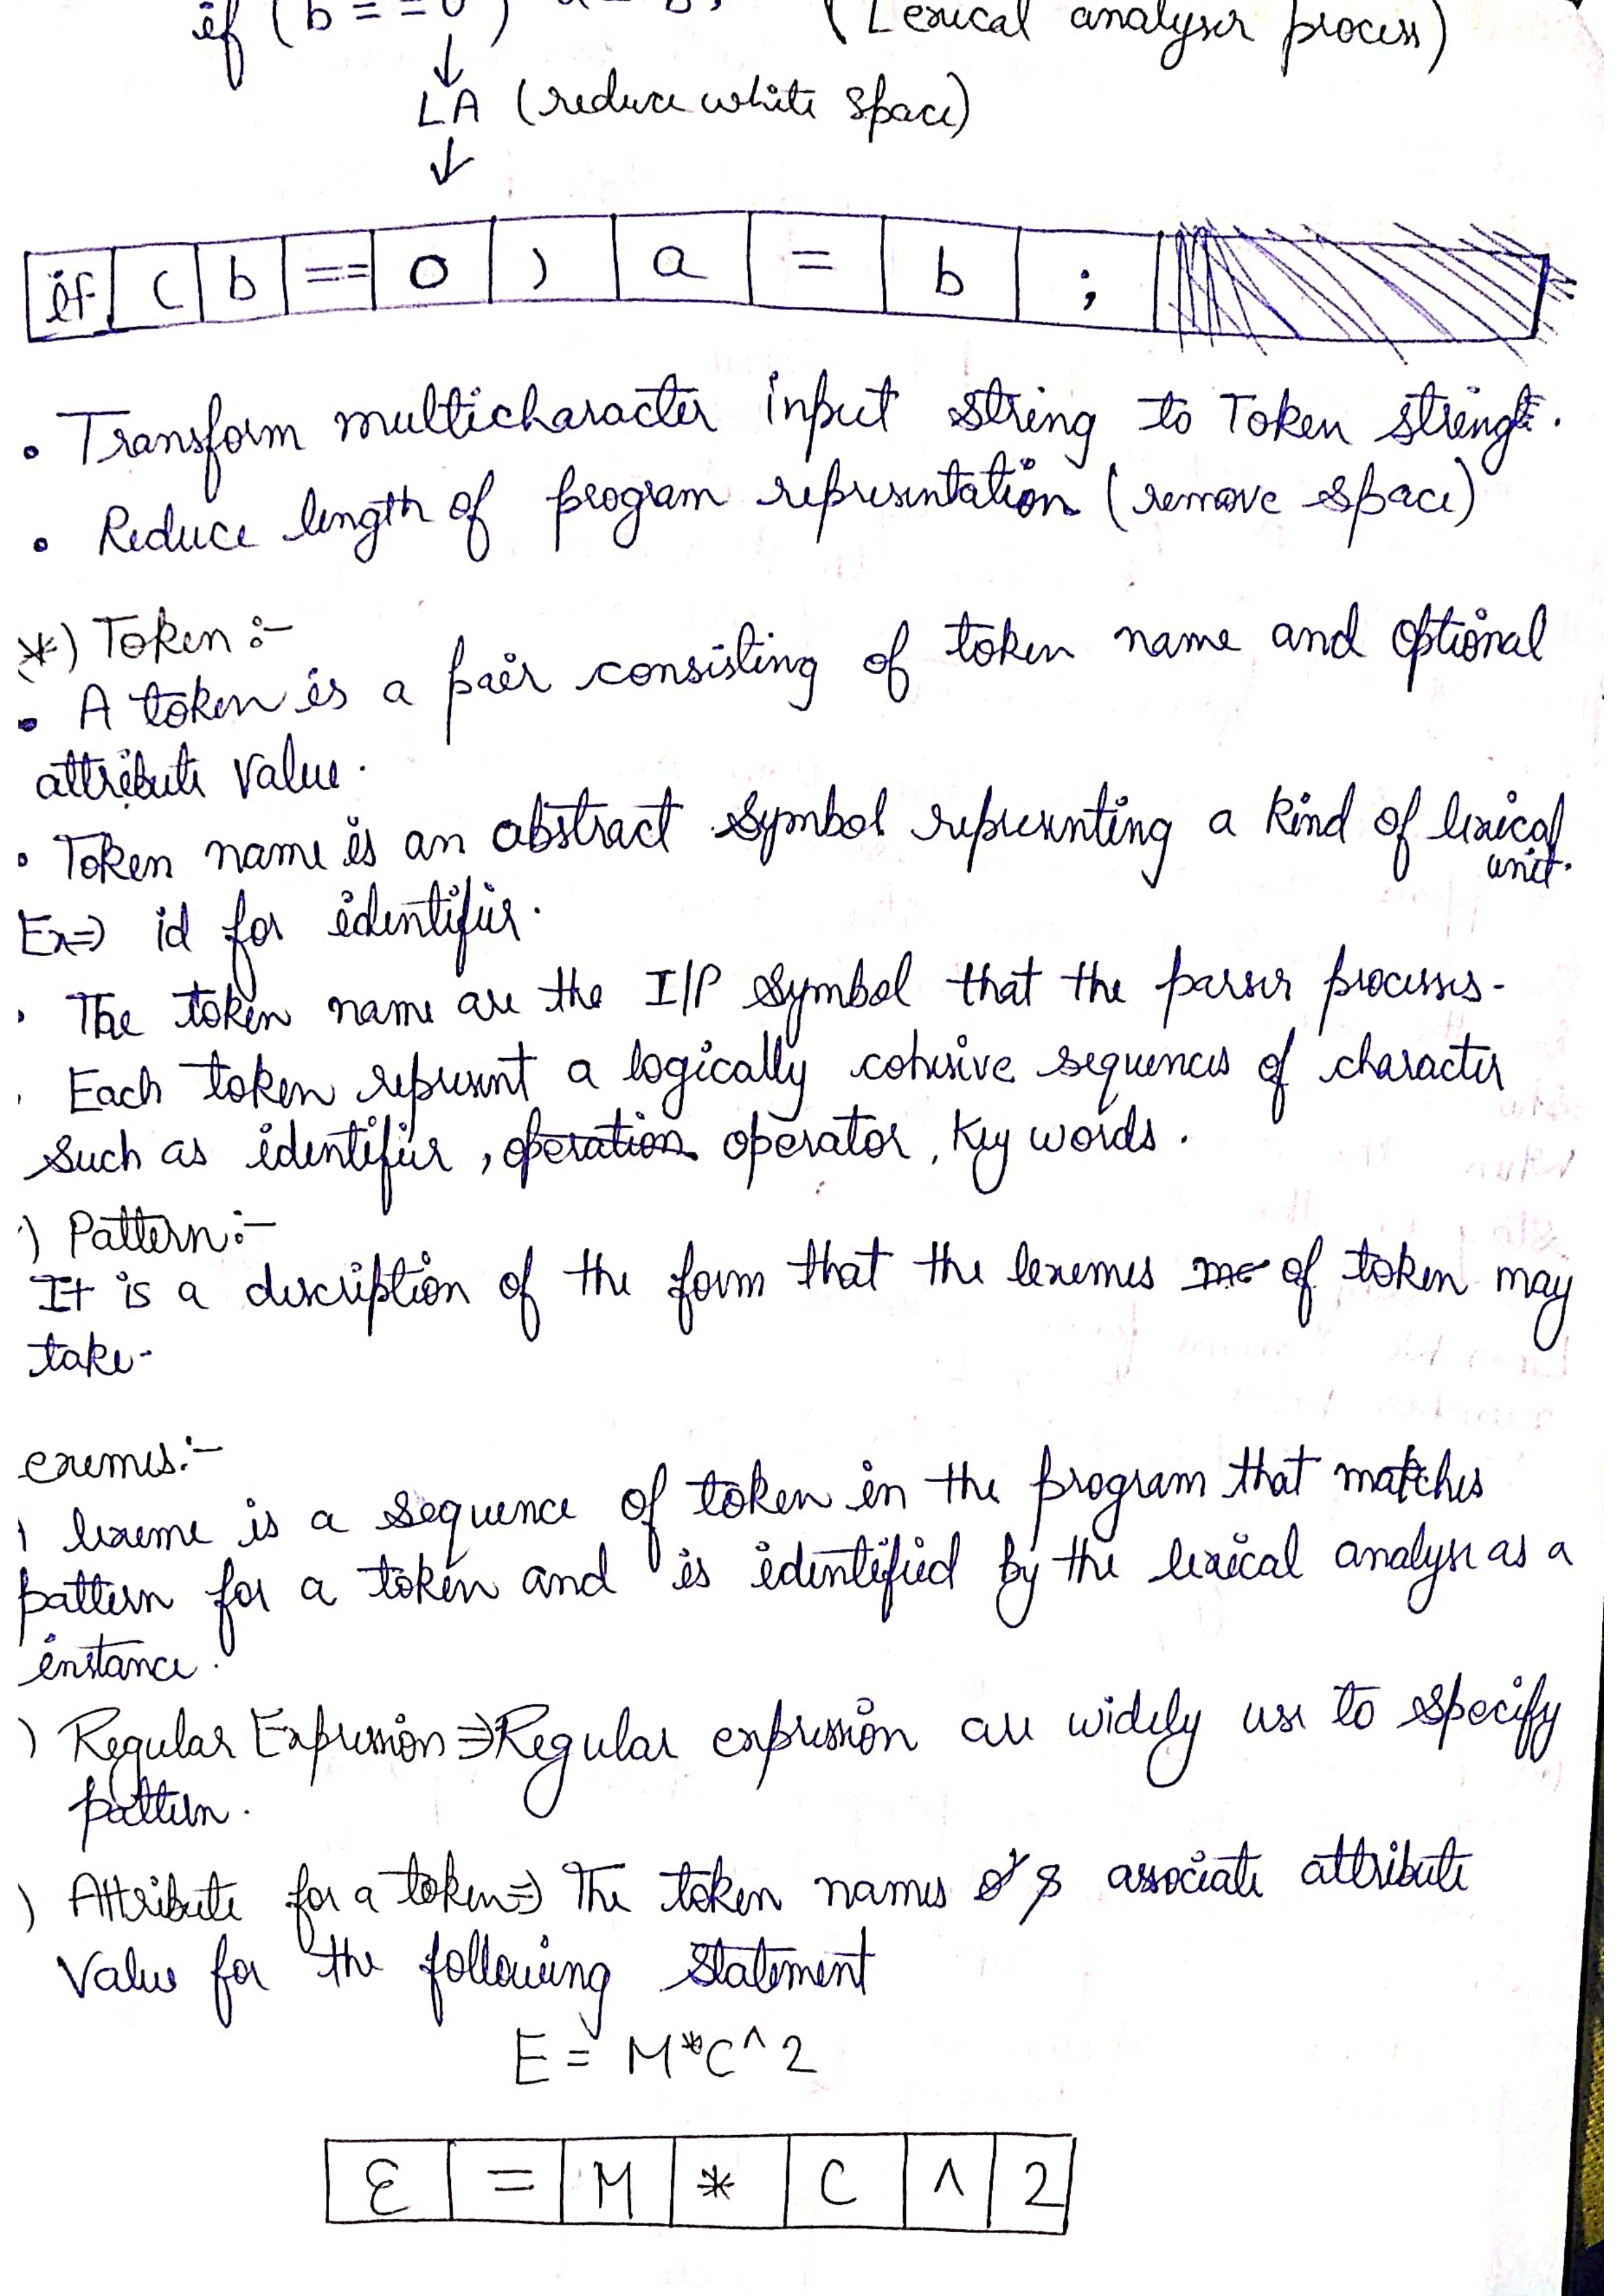 if (b = = 0 ) a = b; (Lexical analyser process)
↓
LA (reduce white space)
↓
if ( b == 0 ) a = b ;
• Transform multicharacter input string to Token string.
• Reduce length of program representation (remove space)
*) Token :-
• A token is a pair consisting of token name and optional
attribute value.
• Token name is an abstract symbol representing a kind of lexical
unit.
Ex⇒ id for identifier.
• The token name are the I/P symbol that the parser processes.
• Each token represent a logically cohesive sequences of character
such as identifier, operation operator, Key words.
) Pattern :-
It is a discription of the form that the lexemes me of token may
take.
exemes :-
lexeme is a sequence of token in the program that matches
pattern for a token and is identified by the lexical analyse as a
instance.
) Regular Expression ⇒ Regular expression are widely use to specify
pattern.
) Attribute for a token ⇒ The token names & associate attribute
Value for the following statement
E = M*C^2
E = M * C ^ 2